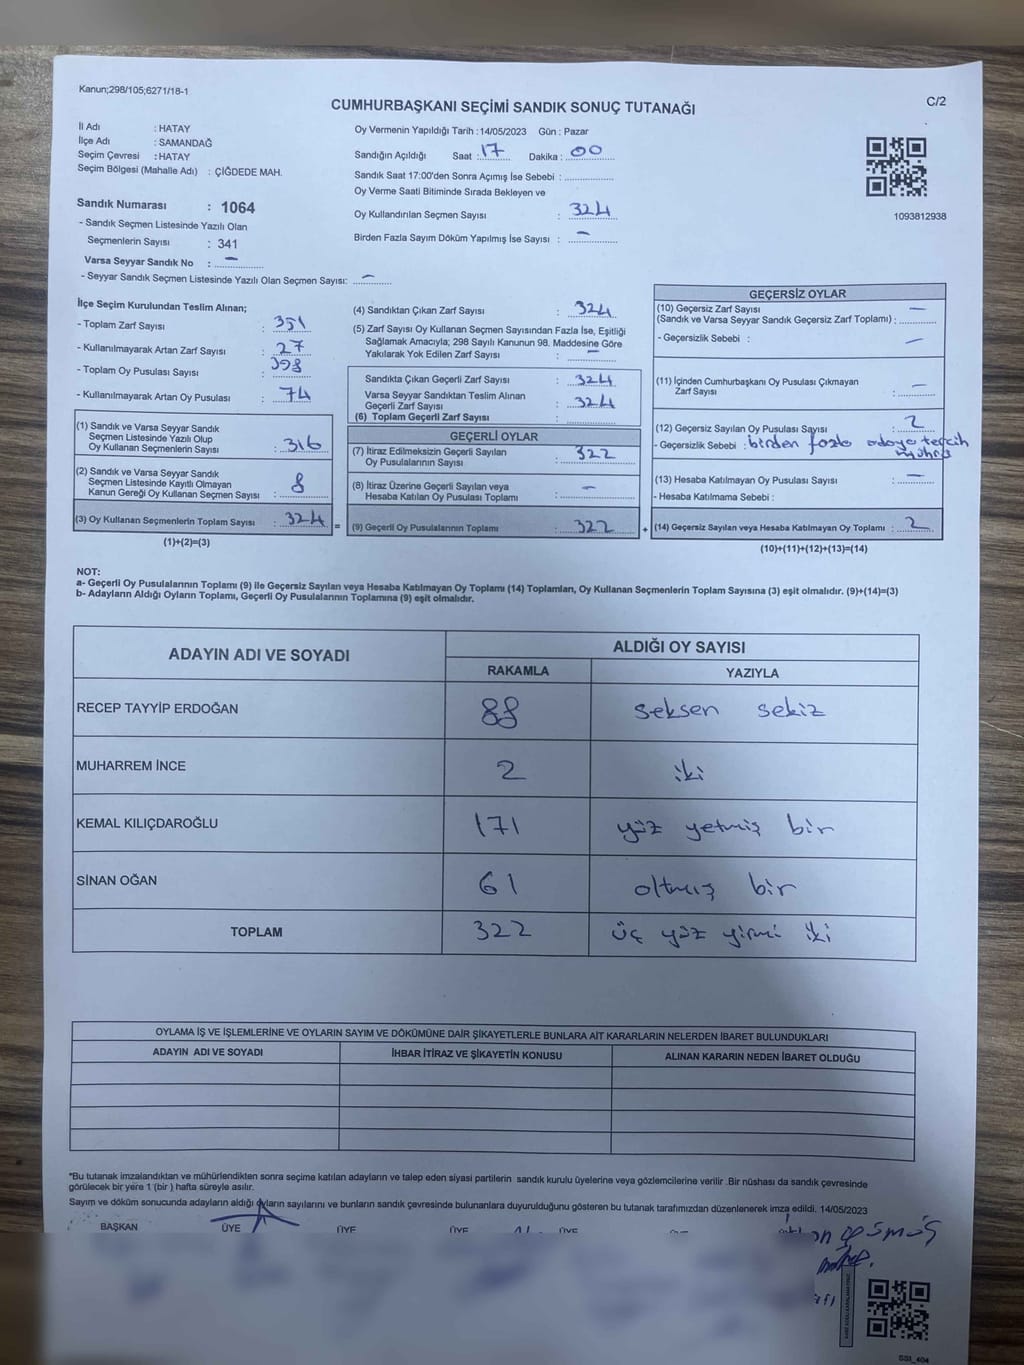 Kanun;298/105;6271/18-1
CUMHURBAŞKANI SEÇİMİ SANDIK SONUÇ TUTANAĞI
C/2
İl Adı : HATAY
İlçe Adı : SAMANDAĞ
Seçim Çevresi : HATAY
Seçim Bölgesi (Mahalle Adı) : ÇİĞDEDE MAH.
Sandık Numarası : 1064
- Sandık Seçmen Listesinde Yazılı Olan
Seçmenlerin Sayısı : 341
Varsa Seyyar Sandık No : —
- Seyyar Sandık Seçmen Listesinde Yazılı Olan Seçmen Sayısı: —
Oy Vermenin Yapıldığı Tarih : 14/05/2023 Gün : Pazar
Sandığın Açıldığı Saat : 17 Dakika : 00
Sandık Saat 17:00'den Sonra Açımış İse Sebebi :
Oy Verme Saati Bitiminde Sırada Bekleyen ve
Oy Kullandırılan Seçmen Sayısı : 324
Birden Fazla Sayım Döküm Yapılmış İse Sayısı : —
1093812938
İlçe Seçim Kurulundan Teslim Alınan;
- Toplam Zarf Sayısı : 351
- Kullanılmayarak Artan Zarf Sayısı : 27
- Toplam Oy Pusulası Sayısı : 398
- Kullanılmayarak Artan Oy Pusulası : 74
(1) Sandık ve Varsa Seyyar Sandık
Seçmen Listesinde Yazılı Olup
Oy Kullanan Seçmenlerin Sayısı : 316
(2) Sandık ve Varsa Seyyar Sandık
Seçmen Listesinde Kayıtlı Olmayan
Kanun Gereği Oy Kullanan Seçmen Sayısı : 8
(3) Oy Kullanan Seçmenlerin Toplam Sayısı : 324 =
(1)+(2)=(3)
(4) Sandıktan Çıkan Zarf Sayısı : 324
(5) Zarf Sayısı Oy Kullanan Seçmen Sayısından Fazla İse, Eşitliği
Sağlamak Amacıyla; 298 Sayılı Kanunun 98. Maddesine Göre
Yakılarak Yok Edilen Zarf Sayısı : —
Sandıkta Çıkan Geçerli Zarf Sayısı : 324
Varsa Seyyar Sandıktan Teslim Alınan
Geçerli Zarf Sayısı : 324
(6) Toplam Geçerli Zarf Sayısı :
GEÇERLİ OYLAR
(7) İtiraz Edilmeksizin Geçerli Sayılan
Oy Pusulalarının Sayısı : 322
(8) İtiraz Üzerine Geçerli Sayılan veya
Hesaba Katılan Oy Pusulası Toplamı : —
(9) Geçerli Oy Pusulalarının Toplamı : 322 +
GEÇERSİZ OYLAR
(10) Geçersiz Zarf Sayısı —
(Sandık ve Varsa Seyyar Sandık Geçersiz Zarf Toplamı) :
- Geçersizlik Sebebi : —
(11) İçinden Cumhurbaşkanı Oy Pusulası Çıkmayan
Zarf Sayısı : —
(12) Geçersiz Sayılan Oy Pusulası Sayısı : 2
- Geçersizlik Sebebi : birden fazla adaya tercih
mührü
(13) Hesaba Katılmayan Oy Pusulası Sayısı : —
- Hesaba Katılmama Sebebi :
(14) Geçersiz Sayılan veya Hesaba Katılmayan Oy Toplamı : 2
(10)+(11)+(12)+(13)=(14)
NOT:
a- Geçerli Oy Pusulalarının Toplamı (9) ile Geçersiz Sayılan veya Hesaba Katılmayan Oy Toplamı (14) Toplamları, Oy Kullanan Seçmenlerin Toplam Sayısına (3) eşit olmalıdır. (9)+(14)=(3)
b- Adayların Aldığı Oyların Toplamı, Geçerli Oy Pusulalarının Toplamına (9) eşit olmalıdır.
ADAYIN ADI VE SOYADI ALDIĞI OY SAYISI
RAKAMLA YAZIYLA
RECEP TAYYİP ERDOĞAN 88 seksen sekiz
MUHARREM İNCE 2 iki
KEMAL KILIÇDAROĞLU 171 yüz yetmiş bir
SİNAN OĞAN 61 altmış bir
TOPLAM 322 üç yüz yirmi iki
OYLAMA İŞ VE İŞLEMLERİNE VE OYLARIN SAYIM VE DÖKÜMÜNE DAİR ŞİKAYETLERLE BUNLARA AİT KARARLARIN NELERDEN İBARET BULUNDUKLARI
ADAYIN ADI VE SOYADI İHBAR İTİRAZ VE ŞİKAYETİN KONUSU ALINAN KARARIN NEDEN İBARET OLDUĞU
*Bu tutanak imzalandıktan ve mühürlendikten sonra seçime katılan adayların ve talep eden siyasi partilerin sandık kurulu üyelerine veya gözlemcilerine verilir .Bir nüshası da sandık çevresinde
görülecek bir yere 1 (bir ) hafta süreyle asılır.
Sayım ve döküm sonucunda adayların aldığı oyların sayılarını ve bunların sandık çevresinde bulunanlara duyurulduğunu gösteren bu tutanak tarafımızdan düzenlenerek imza edildi. 14/05/2023
BAŞKAN ÜYE ÜYE ÜYE ÜYE